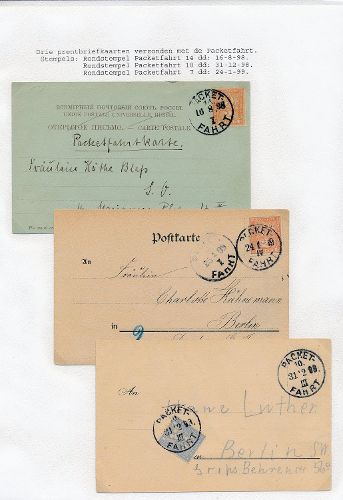 Drie prentbriefkaarten verzonden met de Packetfahrt.
Stempels: Rondstempel Packetfahrt 14 dd: 16-8-98.
Rondstempel Packetfahrt 10 dd: 31-12-98.
Rondstempel Packetfahrt 7 dd: 24-1-99.
PACKET-
16 8 98
I
FAHRT
ВСЕМІРНЫЙ ПОЧТОВЫЙ СОЮЗЪ. РОССІЯ.
UNION POSTALE UNIVERSELLE. RUSSIE.
ОТКРЫТОЕ ПИСЬМО. — CARTE POSTALE.
Packetfahrtkarte.
Fräulein Käthe
S. O.
Postkarte
PACKET-
24 1 99
IV
FAHRT
FAHRT
An
Fräulein
Charlotte Hähnemann
in Berlin
9
PACKET-
10.
31 12 98
III
FAHRT
An
PACKET-
31 12 98
III
FAHRT
Luther
in Berlin SW